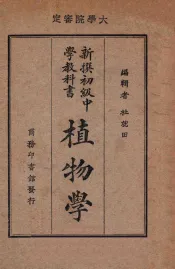 定審院學大
編輯者 杜就田
新撰初級中
學教科書
植物學
商務印書館發行